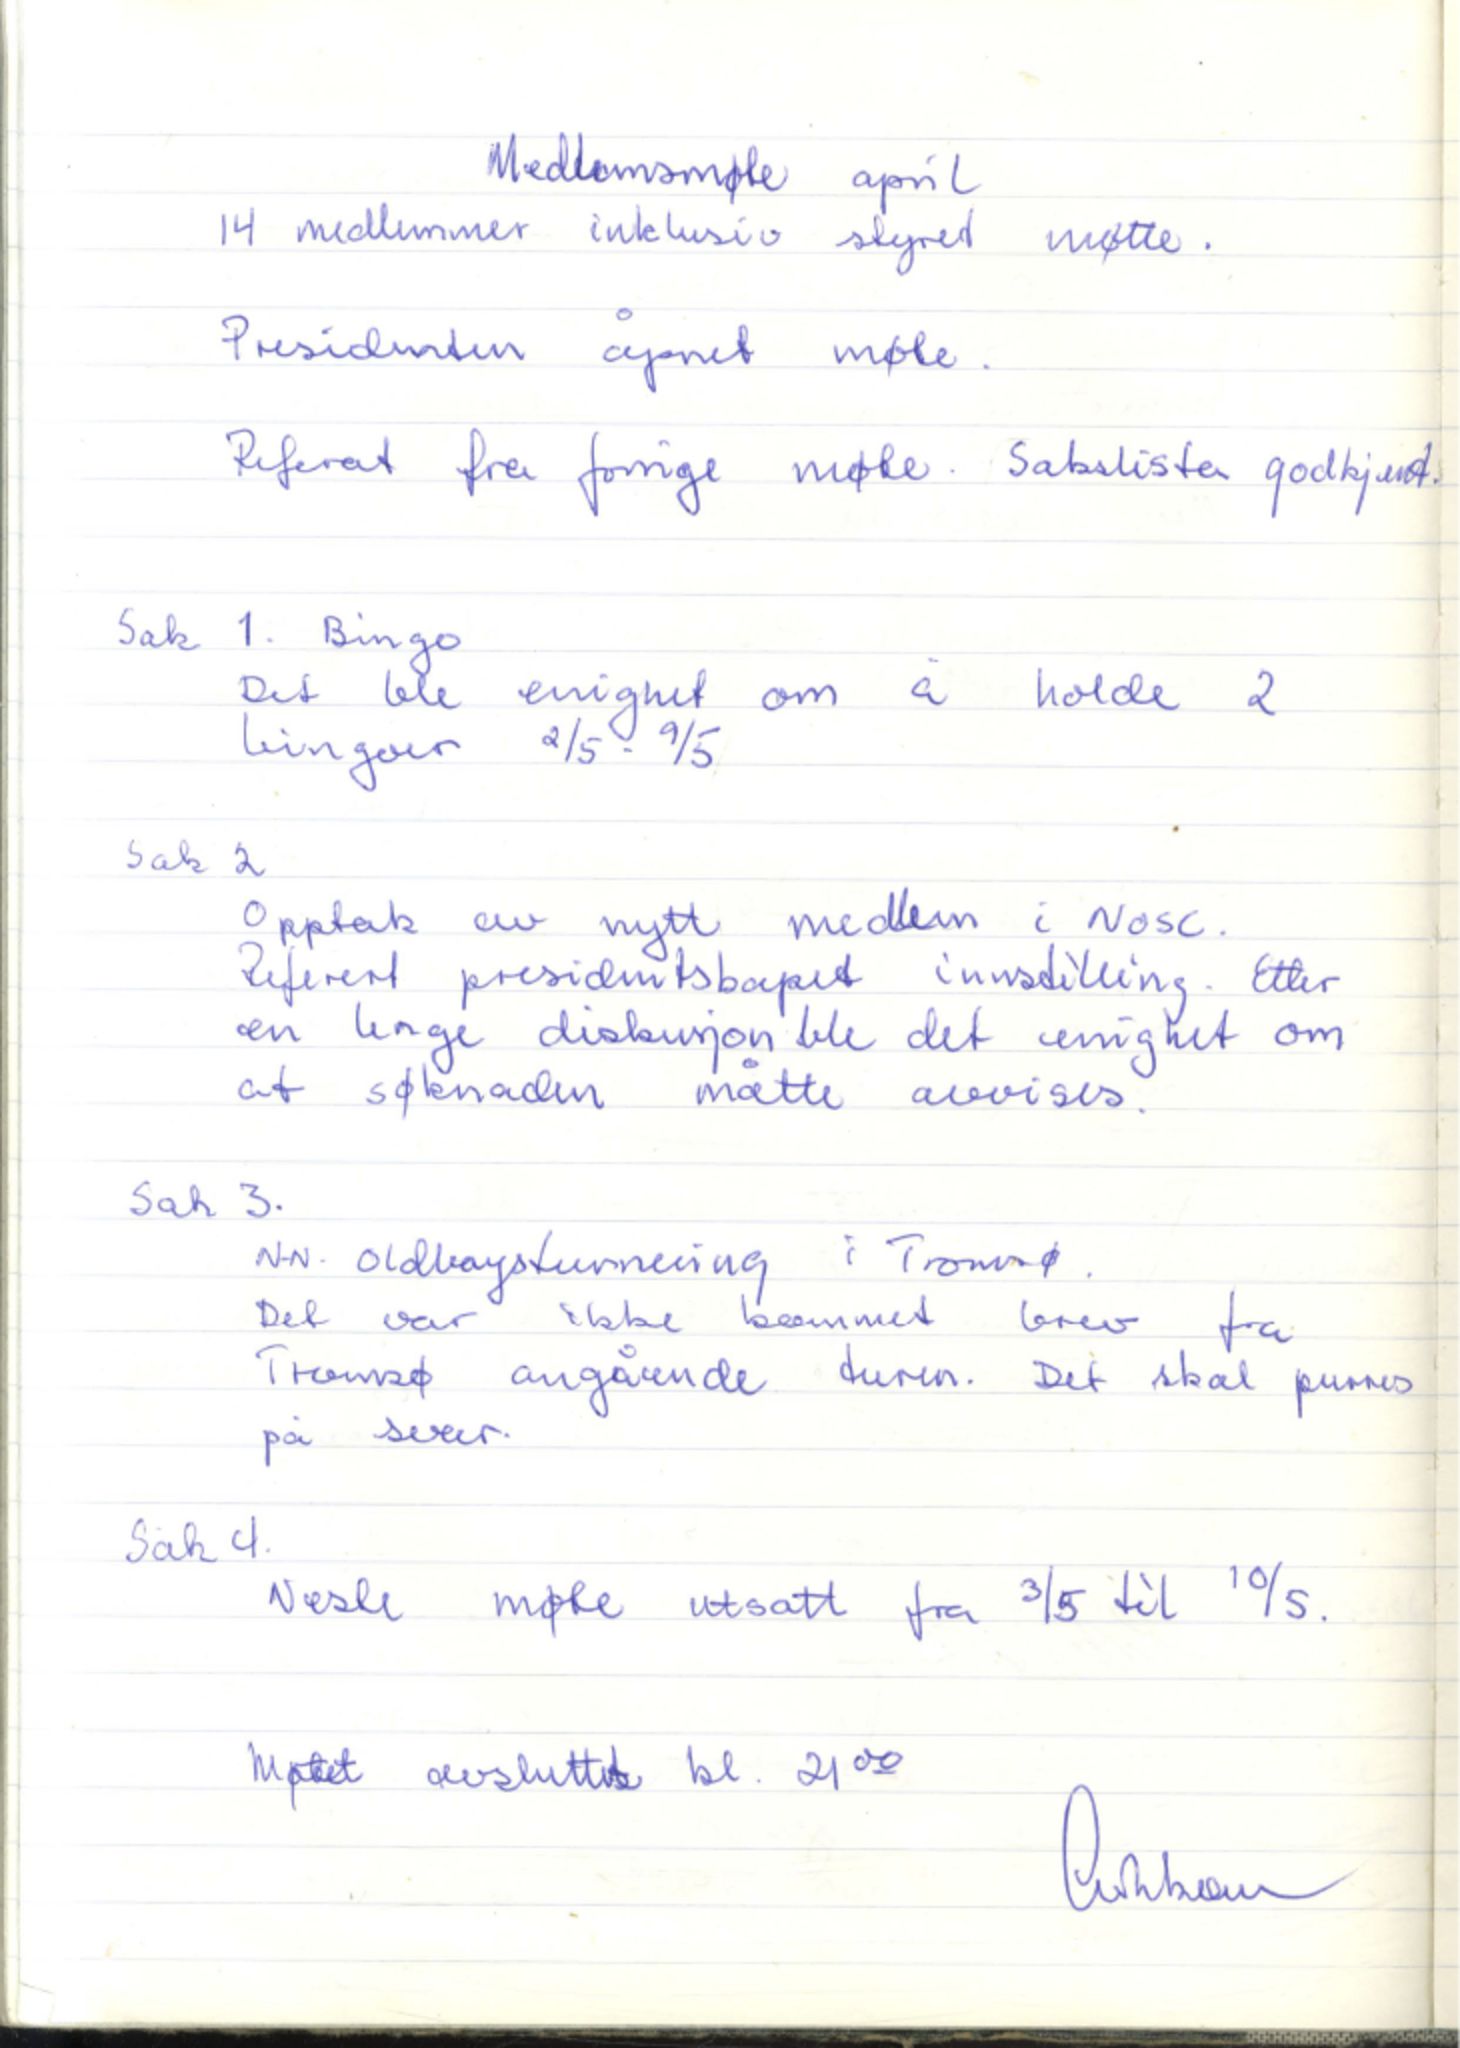 Medlemsmøte april
14 medlemmer inklusiv styret møtte.
Presidenten åpnet møte.
Referat fra forrige møte. Sakslista godkjent.
Sak 1. Bingo
Det ble enighet om å holde 2
bingoer 2/5 - 9/5
Sak 2
Opptak av nytt medlem i NOSC.
Referert presidentskapet innstilling. Etter
en lenge diskusjon ble det enighet om
at søknaden måtte avvises.
Sak 3.
N-N. Oldboysturnering i Tromsø.
Det var ikke kommet brev fra
Tromsø angående turen. Det skal purres
på svar.
Sak 4.
Neste møte utsatt fra 3/5 til 10/5.
Møtet avsluttet kl. 21 00